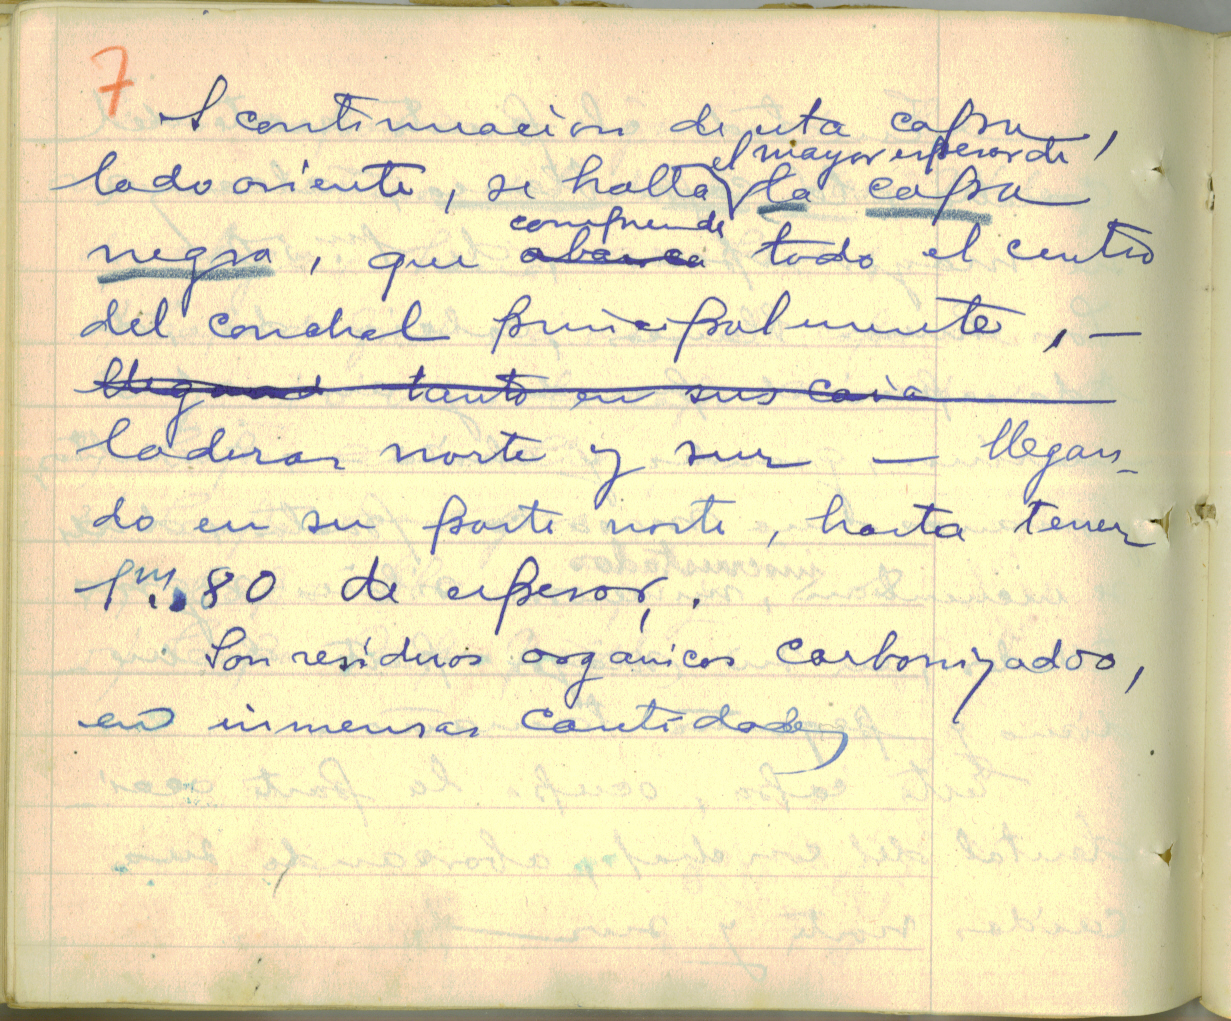 7
A continuacion de esta capa,
el mayor espesor de
lado oriente, se halla la capa
comprende
negra, que abarca todo el centro
del conchal principalmente, —
llegand tanto en sus caia
laderas norte y sur — llegan-
do en su parte norte, hasta tener
1m.80 de espesor,.
Son residuos orgánicos carbonizados,
en inmensas cantidades